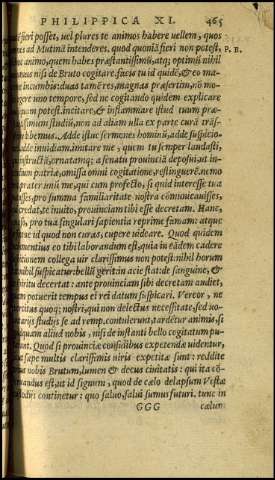 PHILIPPICA XI. 465
fieri posset, uel plures te animos habere uellem, quos
ad Mutinã intenderes. quod quoniã fieri non potest,
P. B.
animo, quem habes præstantissimũ, atq; optimũ nihil
nisi de Bruto cogitare. facis tu id quidẽ, & eo ma
incumbis: duas tamẽ res, magnas præsertim, nõ mo
gerere uno tempore, sed ne cogitando quidem explicare
potest. incitare, & inflammare istud tuum præ
studiũ, non ad aliam ulla ex parte curã trãsf
debemus. Adde istuc sermones hominũ, adde suspicio
adde inuidiam. imitare me, quem tu semper laudasti,
instructã, ornatamq; a senatu prouinciã deposui, ut in
patriæ, omissa omni cogitatione, restinguerẽ. nemo
præter unũ me, qui cum profecto, si quid interesse tua
pro summa familiaritate nostra cõmunicasses,
credat, te inuito, prouinciam tibi esse decretam. Hanc,
pro tua singulari sapientia reprime famam: atque
ne id quod non curas, cupere uideare. Quod quidem
uehementius eo tibi laborandum est, quia in eãdem cadere
collega uir clarissimus non potest: nihil horum
nihil suspicatur: bellũ gerit: in acie stat: de sanguine, &
spiritu decertat: ante prouinciam sibi decretam audiet,
potuerit tempus ei rei datum suspicari. Vereor, ne
quoq; nostri, qui non delectus necessitate, sed uo
studijs se ad remp. contulerunt, tardẽtur animis, si
aliud nobis, nisi de instanti bello cogitatum pu
Quod si prouinciæ consulibus expetendæ uidentur,
sæpe multis clarissimis uiris expetitæ sunt: reddite
nobis Brutum, lumen & decus ciuitatis: qui ita cõ
est, ut id signum, quod de cælo delapsum Vestæ
continetur: quo saluo, salui sumus futuri. tunc in
GGG cælum